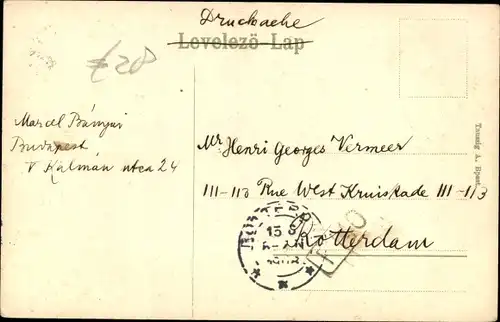 Drucksache
Levelező-Lap
€ 20
Marcel Bányai
Budapest
V Kálmán utca 24
Mr Henri Georges Vermeer
111-113 Rue West Kruiskade 111-113
Rotterdam
Taussig A. Bpest.
ROTTERD
15 8